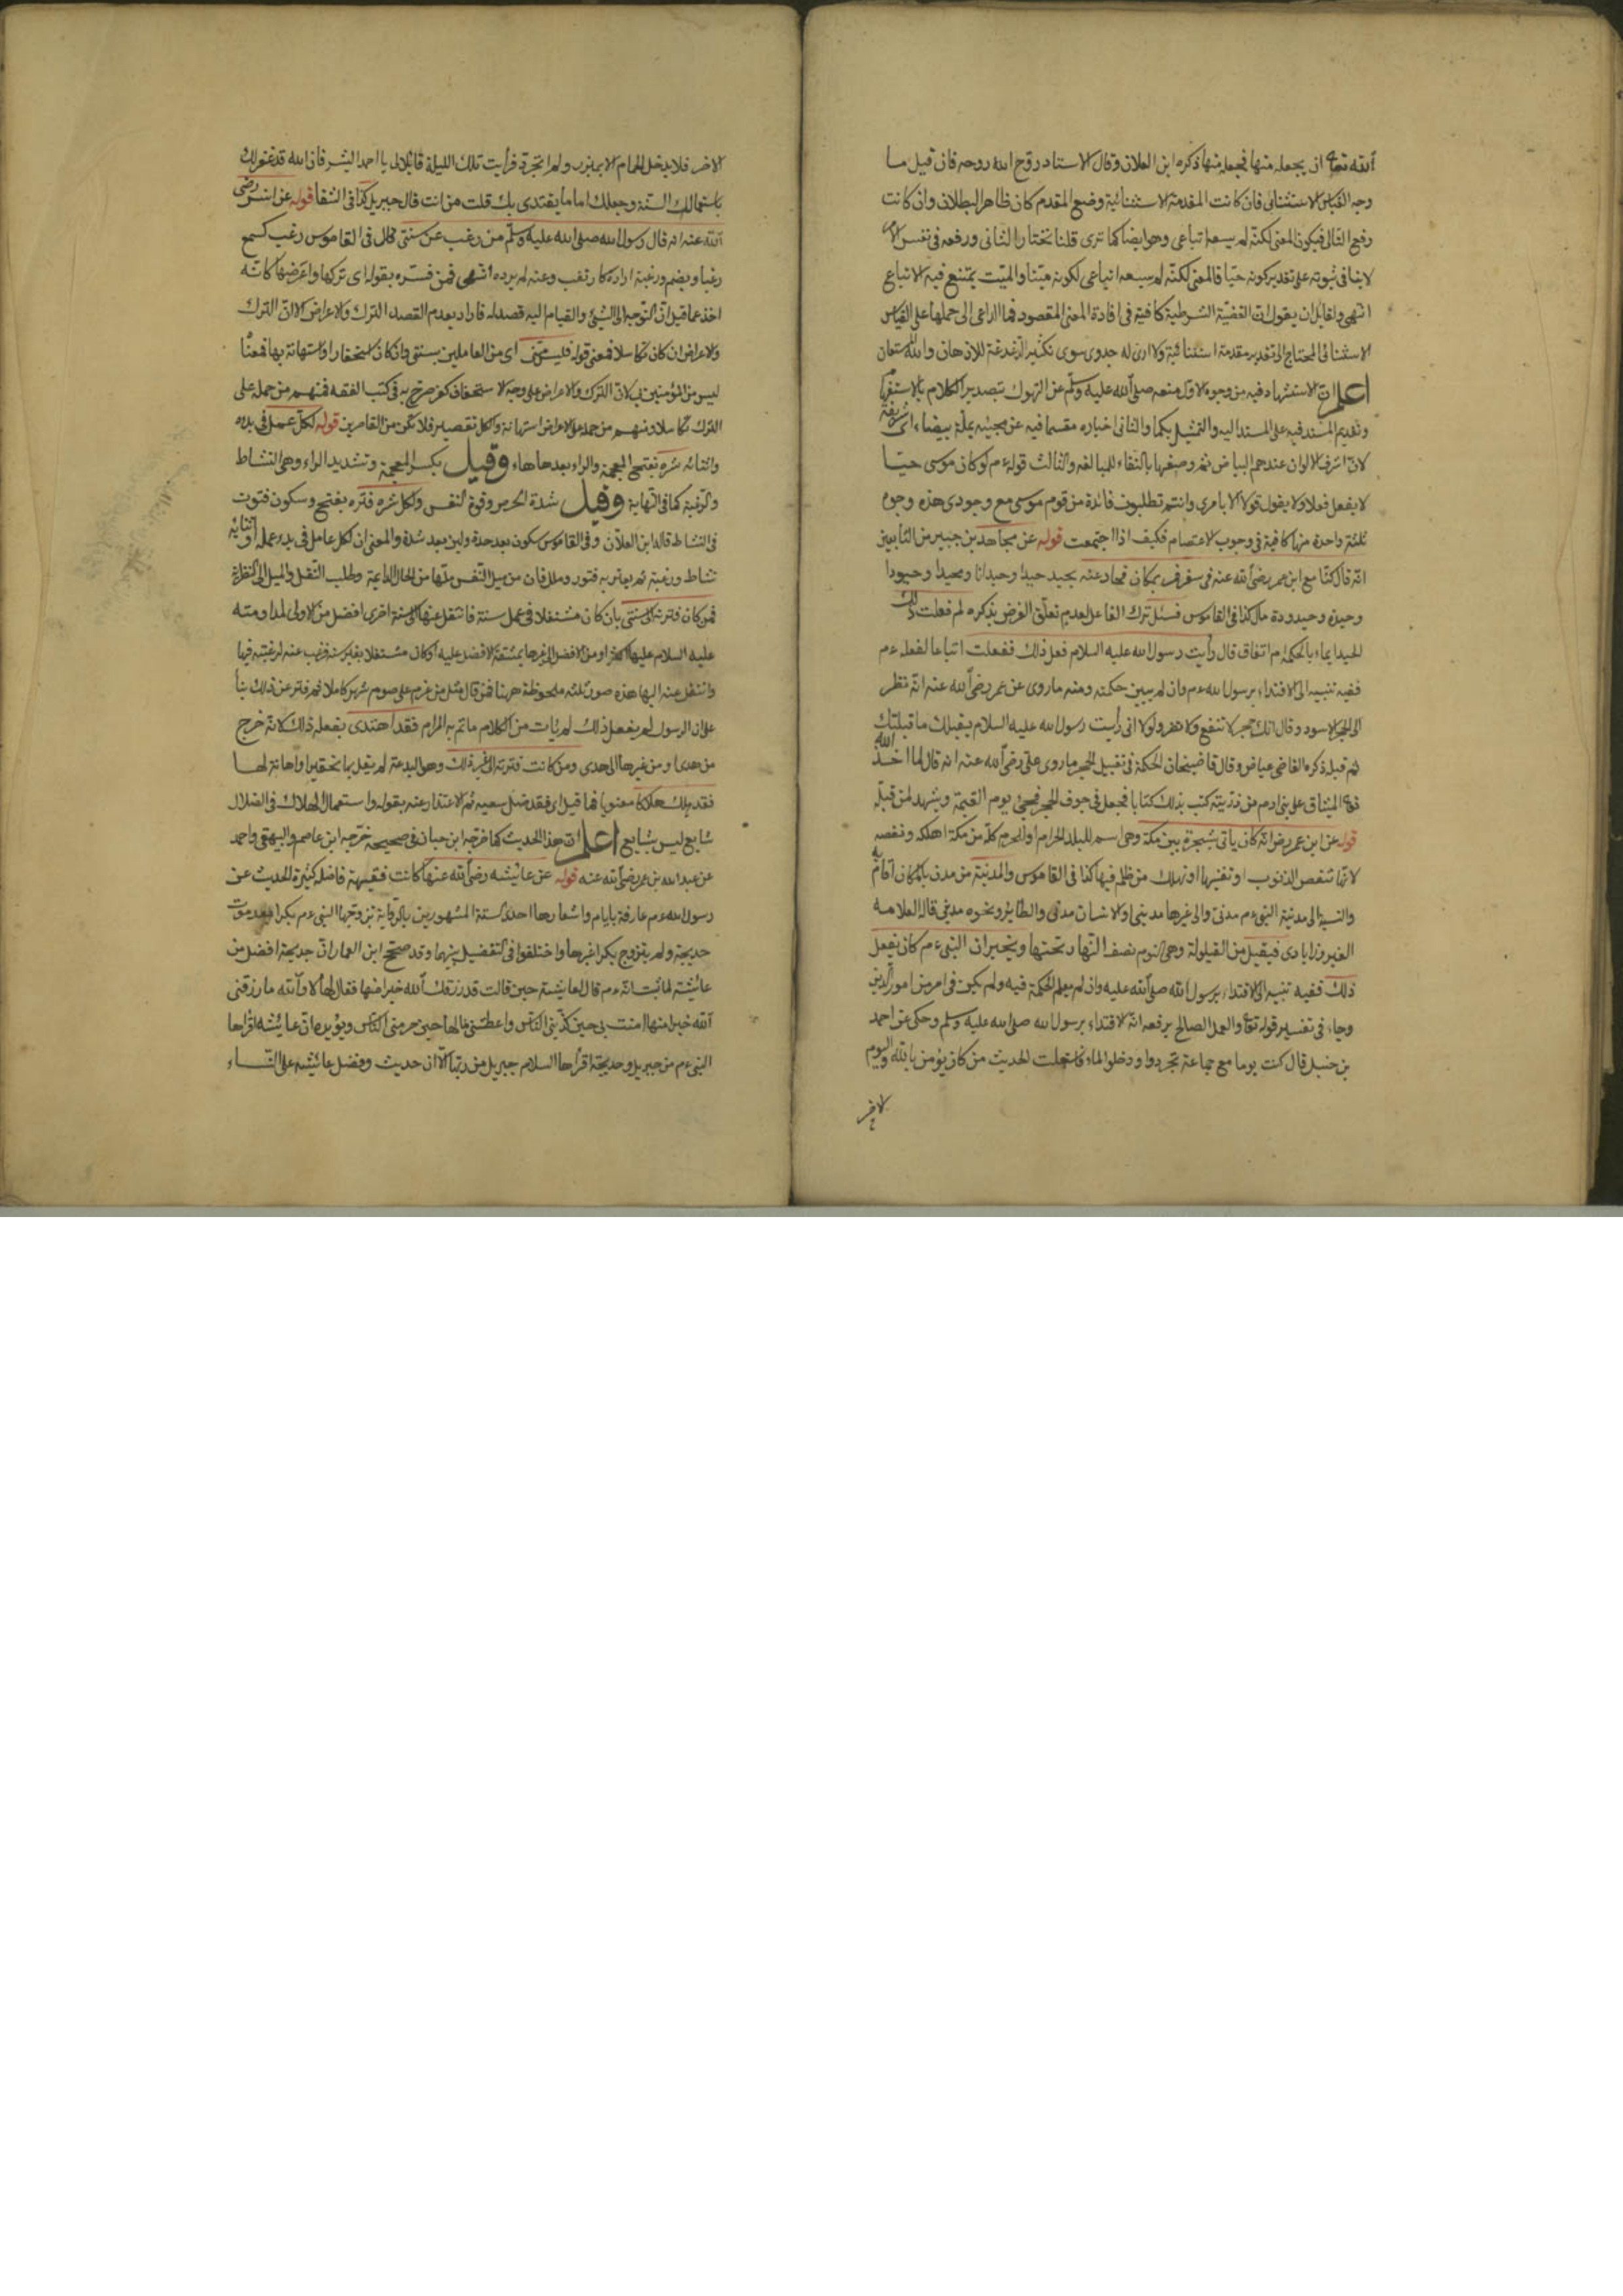 الله تعا ان يجعله منها فجعله منها ذكره ابن العلان وقال الاستاد روح الله روحه فان قيل ما
وجه القياس الاستثنائى فان كانت المقدمة الاستثنائية وضع المقدم كان ظاهر البطلان وان كانت
رفع التالى فيكون المعنى لكنه لم يسعه اتباعى وهو ايضا كما ترى قلنا نختار الثانى ورفعه فى نفس الامر
لا ينافى ثبوته على تقدير كونه حيا فالمعنى لكنه لم يسعه اتباعى لكونه ميتا والميت يمتنع فيه الاتباع
انتهى ولقائل ان يقول ان القضية الشرطية كافية فى افادة المعنى المقصود فما الداعى الى حملها على القياس
الاستثنائى المحتاج الى تقدير مقدمة استثنائية ولا ارى له جدوى سوى تكثير الدغدغة للاذهان والله المستعان
اعلم ان الاستشهاد فيه من وجوه الاول منعه صلى الله عليه وسلم عن التهوك بتصدير الكلام بالاستفهام
وتقديم المسند فيه على المسند اليه والتمثيل بكما والثانى اخباره مقسما فيه عن مجيئه بملة بيضاء اى شريفة
لان اشرف الالوان عندهم البياض ثم وصفها بالنقاء للمبالغه والثالث قوله ءم لو كان موسى حيا
لا يفعل فعلا ولا يقول قولا الا بامرى وانتم تطلبون فائدة من قوم موسى مع وجودى هذه وجوه
ثلثة واحدة منها كافية فى وجوب الاعتصام فكيف اذا اجتمعت قوله عن مجاهد بن جبير من التابعين
انه قال كنا مع ابن عمر رضى الله عنه فى سفر فمر بمكان فحاد عنه يحيد حيدا وحيدانا ومحيدا وحيودا
وحيدة وحيدودة مال كذا فى القاموس فسئل ترك الفاعل لعدم تعلق الغرض بذكره لم فعلت ذلك
الحيد ايماء بالحكمة ام اتفاق قال رأيت رسول الله عليه السلام فعل ذلك ففعلت اتباعا لفعله ءم
ففيه تنبيه الى الاقتداء برسول الله ءم وان لم يبين حكمته ومنه ما روى عن عمر رضى الله عنه انه نظر
الى الحجر الاسود وقال انك حجر لا تنفع ولا تضر ولولا انى رأيت رسول الله عليه السلام يقبلك ما قبلتك
ثم قبله ذكره القاضى عياض وقال قاضيخان الحكمة فى تقبيل الحجر ما روى على رضى الله عنه انه قال لما اخذ الله
تع الميثاق على بنى ادم من ذريته كتب بذلك كتابا فجعل فى جوف الحجر فيجئ يوم القيمة ويشهد لمن قبله
قوله عن ابن عمر رض انه كان ياتى شجرة بين مكة وهى اسم للبلد الحرام او الحرم كله من مكة اهلكه ونقصه
لانها تنقص الذنوب او تفنيها او تهلك من ظلم فيها كذا فى القاموس والمدينة من مدن بالمكان اقام به
والنسبة الى مدينة النبى ءم مدنى والى غيرها مدينى او الانسان مدنى والطاير ونحوه مدينى قاله العلامه
الفيروزابادى فيقيل من القيلولة وهى النوم نصف النهار تحتها ويخبر ان النبى ءم كان يفعل
ذلك ففيه تنبيه الى الاقتداء برسول الله صلى الله عليه وان لم يعلم الحكمة فيه ولم يكن فى امر من امور الدين
وجاء فى تفسير قوله تعا والعمل الصالح يرفعه انه الاقتداء برسول الله صلى الله عليه وسلم وحكى عن احمد
بن حنبل قال كنت يوما مع جماعة تجردوا ودخلوا الماء فاستعملت الحديث من كان يؤمن بالله واليوم
الاخر
الاخر فلا يدخل الحمام الا بمئزر ولم اتجرد فرأيت تلك الليلة قائلا لى يا احمد ابشر فان الله قد غفر لك
باستعمالك السنة وجعلك اماما يقتدى بك قلت من انت قال جبريل كذا فى الشفا قوله عن انس رضى
الله عنه انه قال رسول الله صلى الله عليه وسلم من رغب عن سنتى قال فى القاموس رغب كسمع
رغبا ويضم ورغبة اراده كارتغب وعنه لم يرده انتهى فمن فسره بقوله اى تركها واعرض عنها كانه
اخذ مما قيل ان التوجه الى الشئ والقيام اليه قصد له فاراد بعدم القصد الترك والاعراض الا ان الترك
والاعراض ان كان تكاسلا فمعنى قوله فليس منى اى من العاملين بسنتى وان كان استحقارا واستهانة بها فمعناه
ليس من المؤمنين بى لان الترك والاعراض على وجه الاستخفاف كفر صرح به فى كتب الفقه فمنهم من حمله على
الترك تكاسلا ومنهم من حمله على الاعراض استهانة والكل تقصير فلا تكن من القاصرين قوله لكل عمل فى بدءه
واثنائه شره بفتح المعجمة والراء بعدها هاء وقيل بكسر المعجمة وتشديد الراء وهى النشاط
والرغبة كما فى النهاية وقيل شدة الحرص وقوة النفس ولكل شره فتره بفتح وسكون فتوت
فى النشاط قاله ابن العلان وفى القاموس سكون بعد حدة ولين بعد شدة والمعنى ان لكل عامل فى بدء عمله او اثنايه
نشاط ورغبة ثم يعتريه فتور وملل فان من ميل النفس ملها من الحال الدائمة وطلب النقل والميل الى
فمن كان فترته الى سنتى بان كان مشتغلا فى عمل سنة فانتقل عنها الى سنة اخرى افضل من الاولى لمداومته
عليه السلام عليها اكثر او من الافضل الى غيرها بمشقة الافضل عليه او كان مشتغلا بغير سنة فرغب عنه لرغبته فيها
وانتقل عنه اليها هذه صور ثلثه ملحوظة ههنا فمن قال مثل من عزم على صوم شهر كاملا ثم فتر عن ذلك بناء
على ان الرسول لم يفعل ذلك لم يأت من الكلام ما تم به المرام فقد اهتدى بفعله ذلك لانه خرج
من هدى او من غيرها الى هدى ومن كانت فترته الى غير ذلك وهو البدعة لم يقل بها تحقيرا واهانة لها
فقد هلك هلاكا معنويا فما قيل اى فقد ضل سعيه ثم الاعتذار عنه بقوله واستعمال الهلاك فى الضلال
شايع ليس بشايع اعلم ان هذا الحديث كما خرجه ابن حبان فى صحيحه خرجه ابن عاصم والبيهقى واحمد
عن عبد الله بن عمر رضى الله عنه قوله عن عائيشه رضى الله عنها كانت فقيهة فاضله كثيرة الحديث عن
رسول الله ءم عارفة بايام واشعارها احد الستة المشهورين بالرواية تزوجها النبى ءم بكرا بعد موت
خديجة ولم يتزوج بكرا غيرها واختلفوا فى التفضيل بينهما وقد صحح ابن العماد ان خديجة افضل من
عائشة لما ثبت انه ءم قال لعايشة حين قالت قد رزقك الله خيرا منها فقال لها لا والله ما رزقنى
الله خيرا منها امنت بى حين كذبنى الناس واعطتنى مالها حين حرمنى الناس ويؤيده ان عايشه اقراها
النبى ءم من جبريل وخديجة اقرأها السلام جبريل من ربها الا ان حديث وفضل عائيشه على النساء